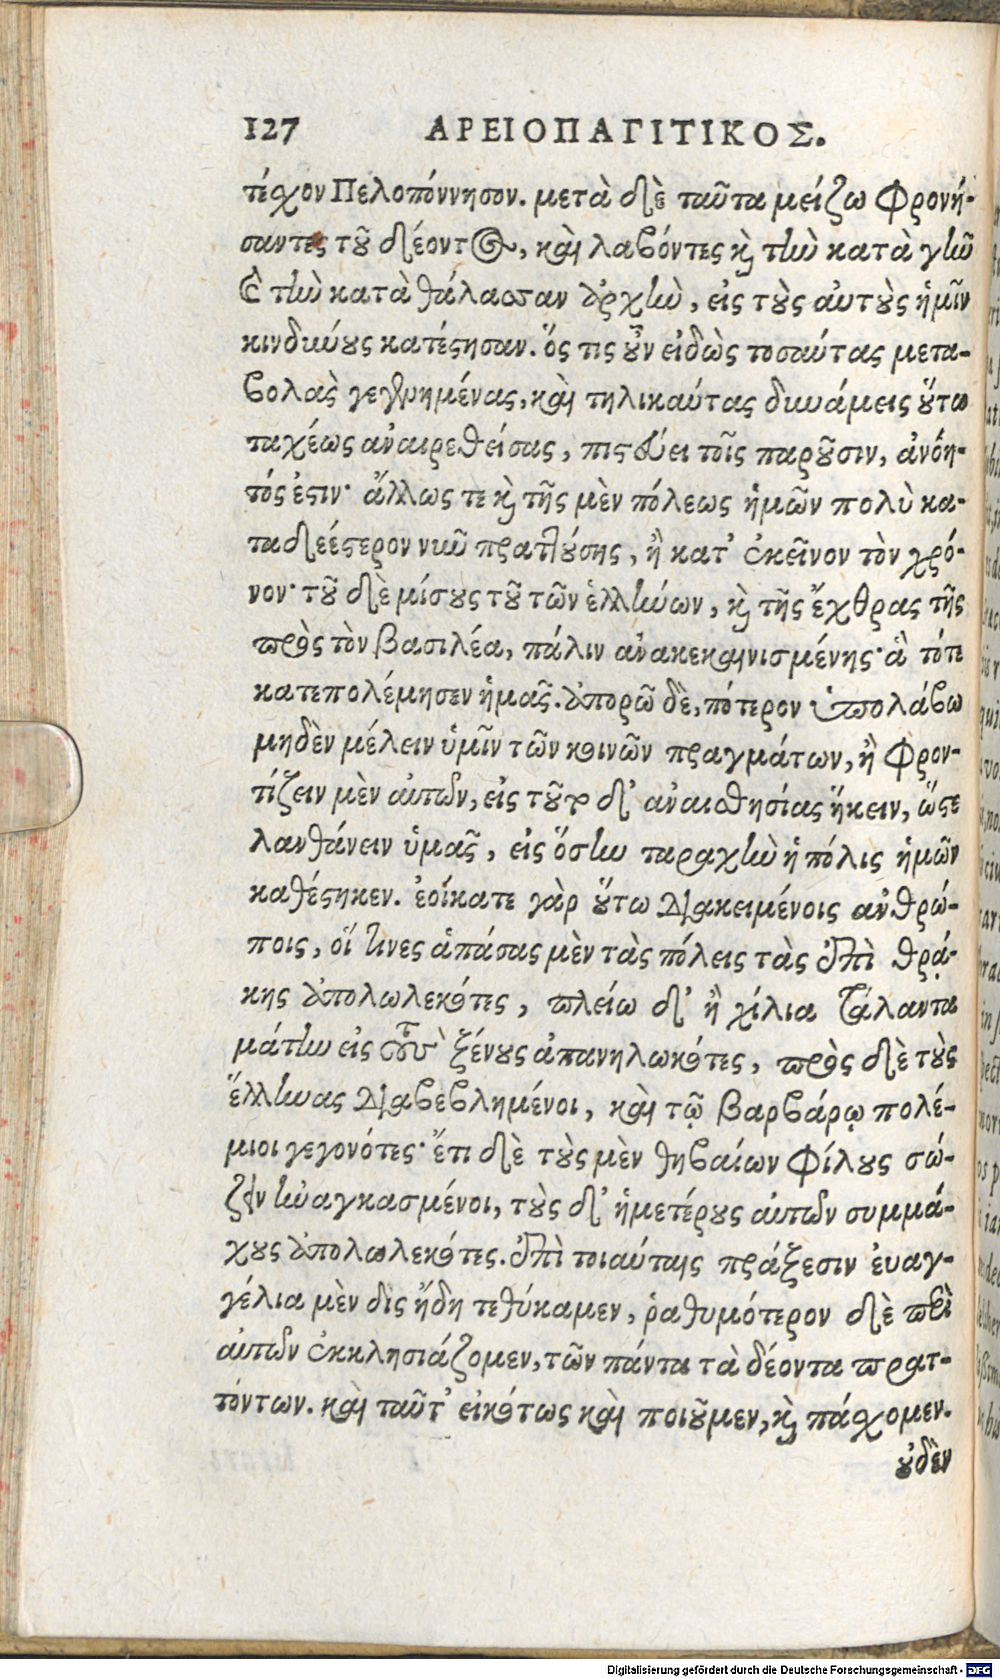 127 ΑΡΕΙΟΠΑΓΙΤΙΚΟΣ.
τέσχον Πελοπόννησον. μετὰ δὲ ταῦτα μείζω φρονή-
σαντες τοῦ δέοντος, καὶ λαβόντες καὶ τὴν κατὰ γῆν
καὶ τὴν κατὰ θάλασσαν ἀρχὴν, εἰς τοὺς αὐτοὺς ἡμῖν
κινδύνους κατέστησαν. ὅς τις οὖν εἰδὼς τοσαύτας μετα-
βολὰς γεγενημένας, καὶ τηλικαύτας δυνάμεις οὕτω
ταχέως ἀναιρεθείσας, πιστεύει τοῖς παροῦσιν, ἀνόη-
τός ἐστιν· ἄλλως τε καὶ τῆς μὲν πόλεως ἡμῶν πολὺ κα-
ταδεέστερον νῦν πραττούσης, ἢ κατ’ ἐκεῖνον τὸν χρό-
νον· τοῦ δὲ μίσους τοῦ τῶν ἑλλήνων, καὶ τῆς ἔχθρας τῆς
πρὸς τὸν βασιλέα, πάλιν ἀνακεκαινισμένης· ἃ τότε
κατεπολέμησεν ἡμᾶς. ἀπορῶ δὲ, πότερον ὑπολάβω
μηδὲν μέλειν ὑμῖν τῶν κοινῶν πραγμάτων, ἢ φρον-
τίζειν μὲν αὐτῶν, εἰς τοῦτο δ’ ἀναισθησίας ἥκειν, ὥστε
λανθάνειν ὑμᾶς, εἰς ὅσην ταραχὴν ἡ πόλις ἡμῶν
καθέστηκεν. ἐοίκατε γὰρ οὕτω διακειμένοις ἀνθρώ-
ποις, οἵ τινες ἁπάσας μὲν τὰς πόλεις τὰς ἐπὶ θρά-
κης ἀπολωλεκότες, πλείω δ’ ἢ χίλια τάλαντα
μάτην εἰς τοὺς ξένους ἀπανηλωκότες, πρὸς δὲ τοὺς
ἕλληνας διαβεβλημένοι, καὶ τῷ βαρβάρῳ πολέ-
μιοι γεγονότες· ἔτι δὲ τοὺς μὲν θηβαίων φίλους σώ-
ζειν ἠναγκασμένοι, τοὺς δ’ ἡμετέρους αὐτῶν συμμά-
χους ἀπολωλεκότες. ἐπὶ τοιαύταις πράξεσιν ἐυαγ-
γέλια μὲν δὶς ἤδη τεθύκαμεν, ῥαθυμότερον δὲ περὶ
αὐτῶν ἐκκλησιάζομεν, τῶν πάντα τὰ δέοντα πρατ-
τόντων. καὶ ταῦτ’ εἰκότως καὶ ποιοῦμεν, καὶ πάσχομεν.
οὐδὲν
Digitalisierung gefördert durch die Deutsche Forschungsgemeinschaft - DFG